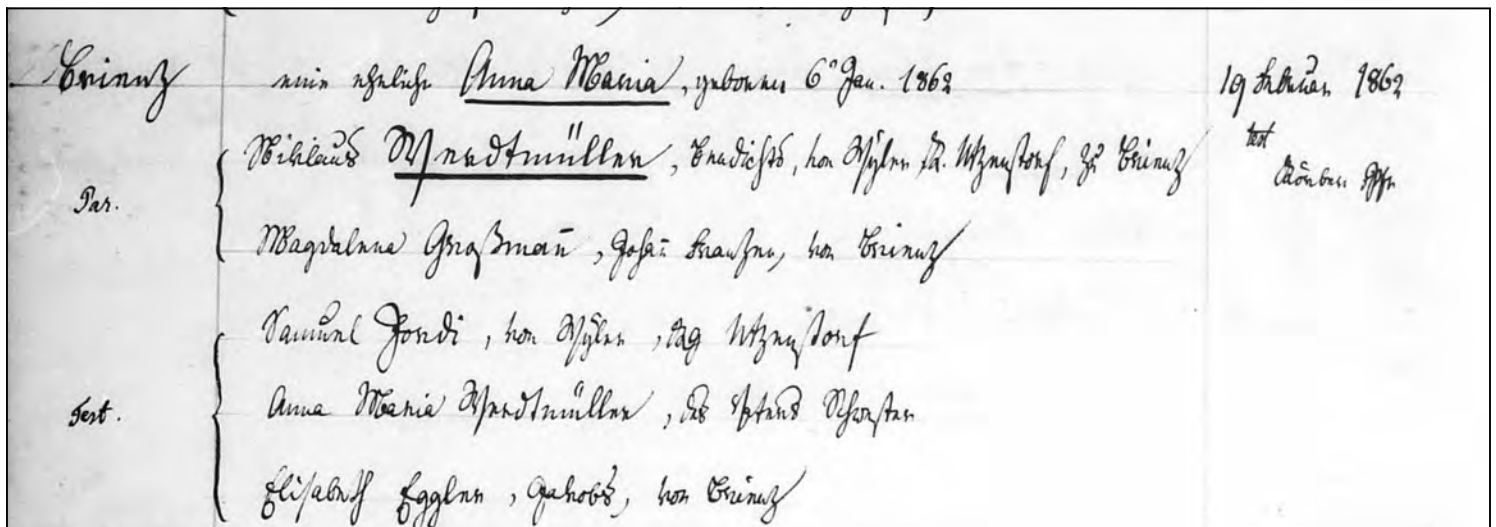 Brienz eine eheliche Anna Maria, geboren 6ᵒ Jan. 1862 19 Februar 1862
Niklaus Werdtmüller, Bendichts, von Wyler, Utzenstorf, zu Brienz test
Par. Magdalena Großmañ, Johañ Franzen, von Brienz
Samuel Jordi, von Wyler, Utzenstorf
Test. Anna Maria Werdtmüller, des Vaters Schwester
Elisabeth Eggler, Jakobs, von Brienz